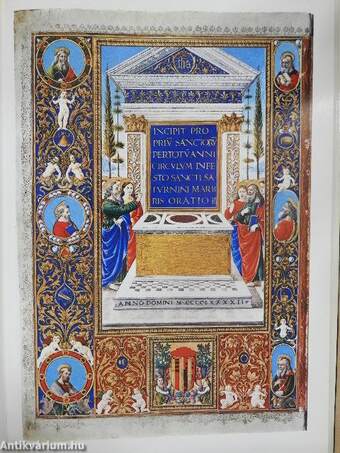 ihs
INCIPIT PRO
PRIŪ SANCTORŪ
PER TOTŪ ANNI
CIRCVLVM IN FE
STO SANCTI SA
TVRNINI MARTI
RIS ORATIO
ANNO DOMINI M CCCC LXXXXII
Antikvárium.hu